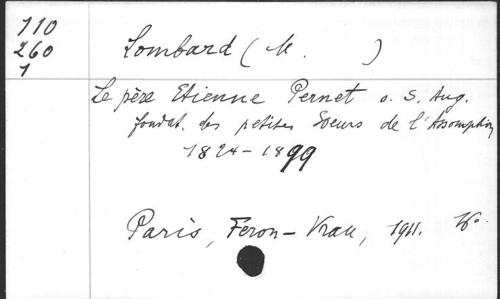 110
260
1
Lombard ( M. )
Le père Etienne Pernet o. S. Aug.
fondat. des petites Soeurs de l'Assomption
1824-1899
Paris, Féron-Vrau, 1911.